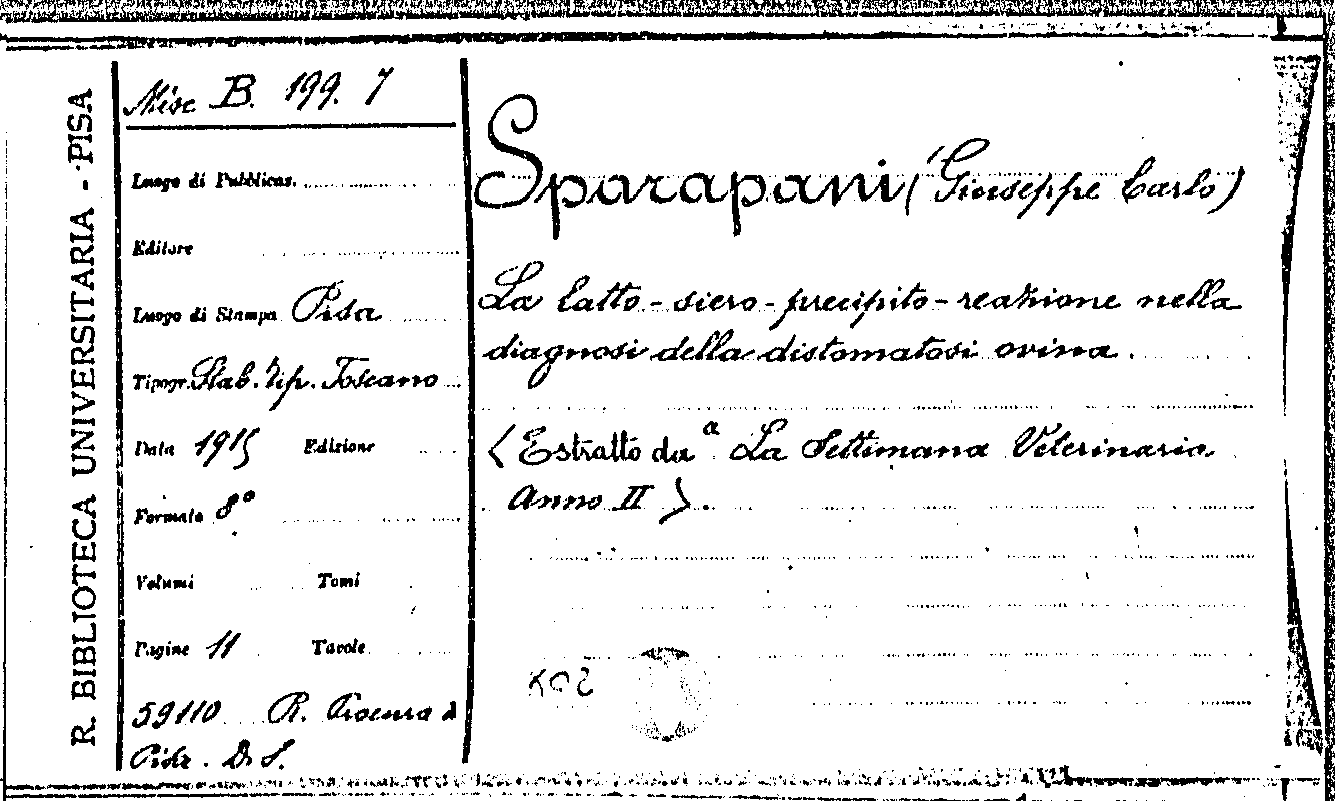 R. BIBLIOTECA UNIVERSITARIA - PISA
Misc B. 199. 7
Luogo di Pubblicaz.
Editore
Luogo di Stampa Pisa
Tipogr. Stab. Tip. Toscano
Data 1915 Edizione
Formato 8°
Volumi Tomi
Pagine 11 Tavole
59110 R. Procura di
Pisa. D. S.
Sparapani (Giuseppe Carlo)
La latto-siero-precipito-reazione nella
diagnosi della distomatosi ovina.
(Estratto da " La Settimana Veterinaria
Anno II).